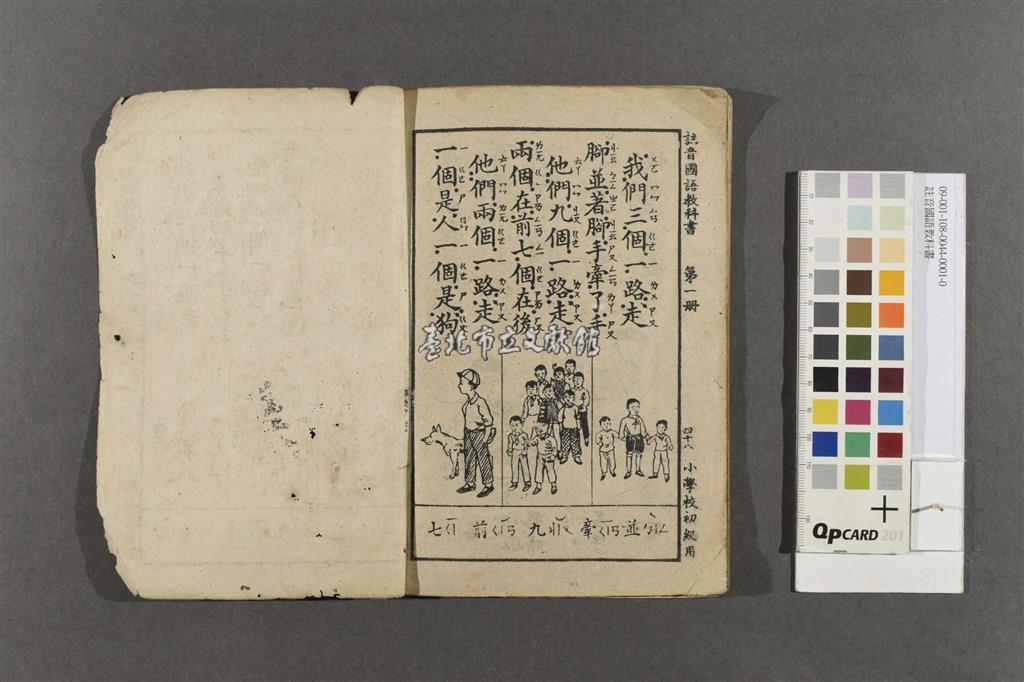 註音國語教科書 第一册 四十八 小學校初級用
我們三個一路走
腳並著腳手牽了手
他們九個一路走
兩個在前七個在後
他們兩個一路走
一個是人一個是狗
並 牽 九 前 七
臺北市立文獻館
09-001-108-0044-0001-0
註音國語教科書
QPCARD 201